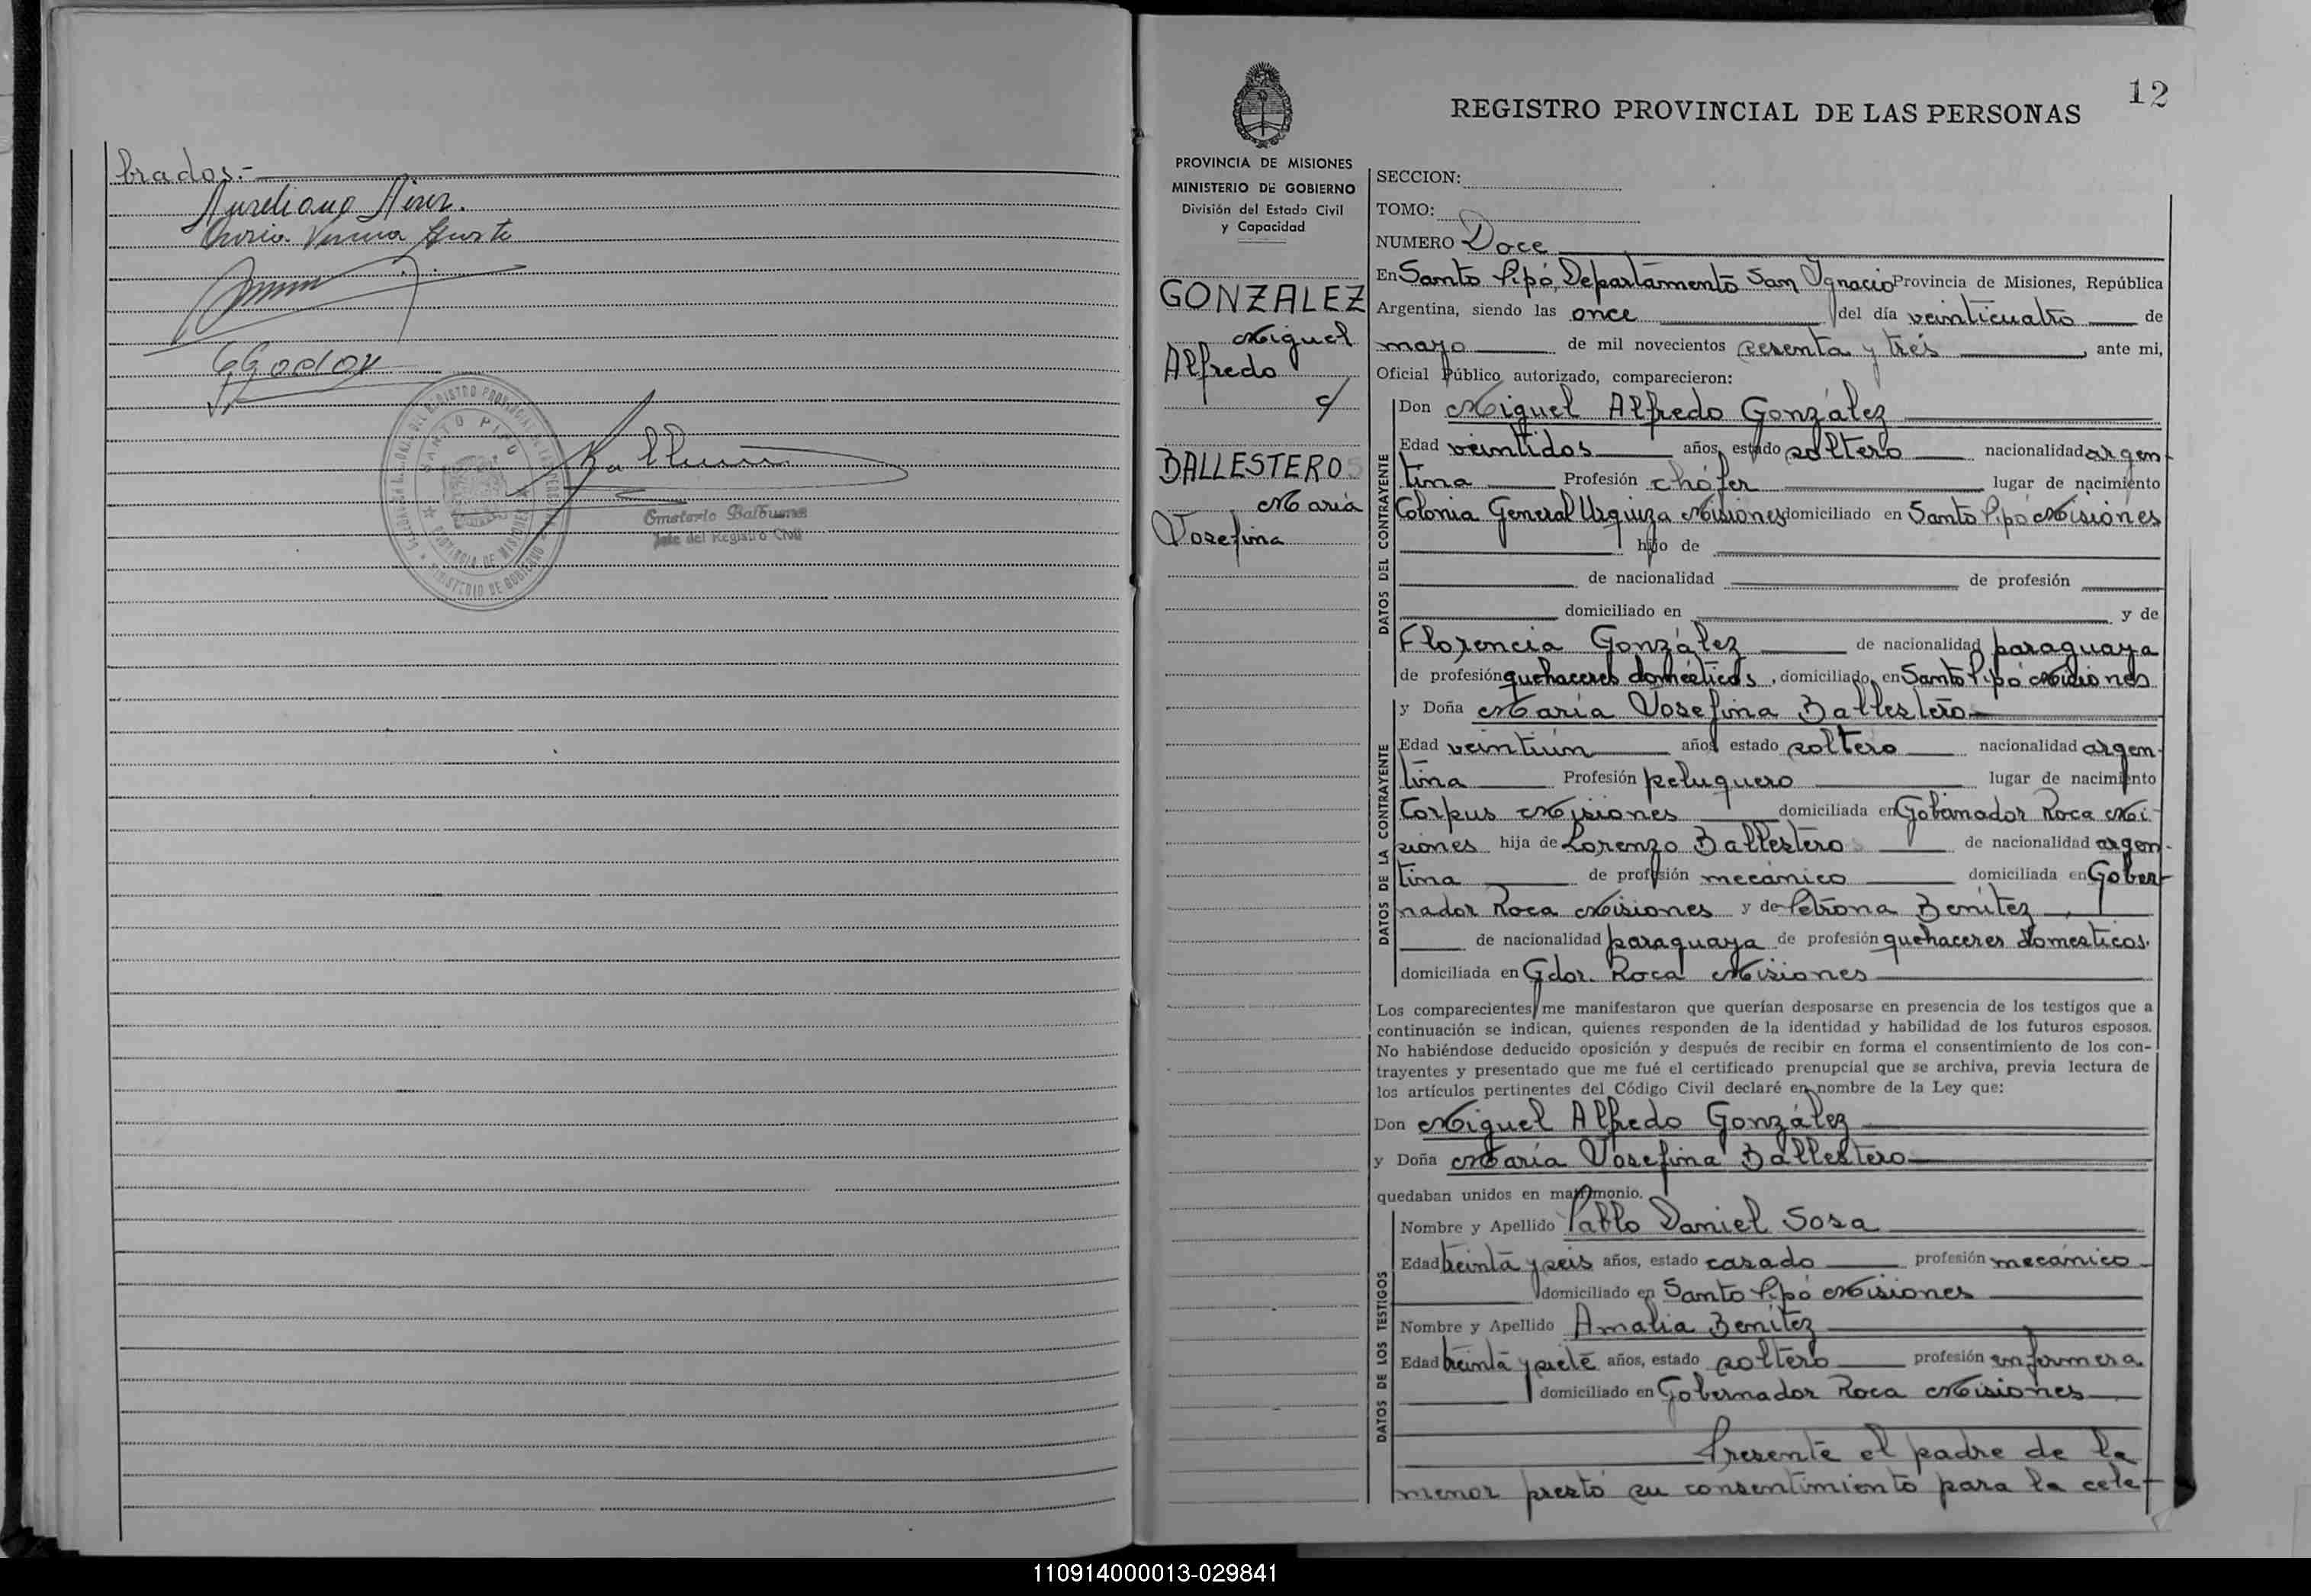 brados.-
Aureliano
GGodoy
SANTO PIPO
PROVINCIA DE MISIONES
MINISTERIO DE GOBIERNO
Emeterio Balbuena
Jefe del Registro Civil
12
REGISTRO PROVINCIAL DE LAS PERSONAS
PROVINCIA DE MISIONES
MINISTERIO DE GOBIERNO
División del Estado Civil
y Capacidad
GONZALEZ
Miguel
Alfredo
c/
BALLESTEROS
María
Josefina
SECCION:
TOMO:
NUMERO Doce
En Santo Pipó, Departamento San Ignacio Provincia de Misiones, República
Argentina, siendo las once del día veinticuatro de
mayo de mil novecientos sesenta y tres, ante mi,
Oficial Público autorizado, comparecieron:
DATOS DEL CONTRAYENTE
Don Miguel Alfredo González
Edad veintidos años, estado soltero nacionalidad argen-
tina Profesión chófer lugar de nacimiento
Colonia General Urquiza Misiones domiciliado en Santo Pipó Misiones
hijo de
de nacionalidad de profesión
domiciliado en y de
Florencia González de nacionalidad paraguaya
de profesión quehaceres domésticos, domiciliado en Santo Pipó Misiones
DATOS DE LA CONTRAYENTE
y Doña María Josefina Ballestero
Edad veintiún años estado soltero nacionalidad argen-
tina Profesión peluquero lugar de nacimiento
Corpus Misiones domiciliada en Gobernador Roca Mi-
siones hija de Lorenzo Ballesteros de nacionalidad argen-
tina de profesión mecánico domiciliada en Gober-
nador Roca Misiones y de Petrona Benítez,
de nacionalidad paraguaya de profesión quehaceres domesticos.
domiciliada en Gdor. Roca Misiones
Los comparecientes me manifestaron que querían desposarse en presencia de los testigos que a
continuación se indican, quienes responden de la identidad y habilidad de los futuros esposos.
No habiéndose deducido oposición y después de recibir en forma el consentimiento de los con-
trayentes y presentado que me fué el certificado prenupcial que se archiva, previa lectura de
los artículos pertinentes del Código Civil declaré en nombre de la Ley que:
Don Miguel Alfredo González
y Doña María Josefina Ballestero
quedaban unidos en matrimonio.
DATOS DE LOS TESTIGOS
Nombre y Apellido Pablo Daniel Sosa
Edad treinta y seis años, estado casado profesión mecánico
domiciliado en Santo Pipó Misiones
Nombre y Apellido Amalia Benítez
Edad treinta y siete años, estado soltero profesión enfermera
domiciliado en Gobernador Roca Misiones
Presente el padre de la
menor prestó su consentimiento para la cele-
110914000013-029841